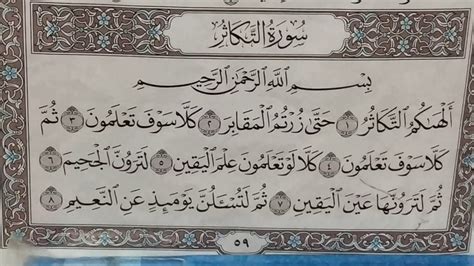 سُورَةُ التَّكَاثُرِ
بِسْمِ اللَّهِ الرَّحْمَٰنِ الرَّحِيمِ
أَلْهَاكُمُ التَّكَاثُرُ ١ حَتَّىٰ زُرْتُمُ الْمَقَابِرَ ٢ كَلَّا سَوْفَ تَعْلَمُونَ ٣ ثُمَّ
كَلَّا سَوْفَ تَعْلَمُونَ ٤ كَلَّا لَوْ تَعْلَمُونَ عِلْمَ الْيَقِينِ ٥ لَتَرَوُنَّ الْجَحِيمَ ٦
ثُمَّ لَتَرَوُنَّهَا عَيْنَ الْيَقِينِ ٧ ثُمَّ لَتُسْأَلُنَّ يَوْمَئِذٍ عَنِ النَّعِيمِ ٨
٥٩